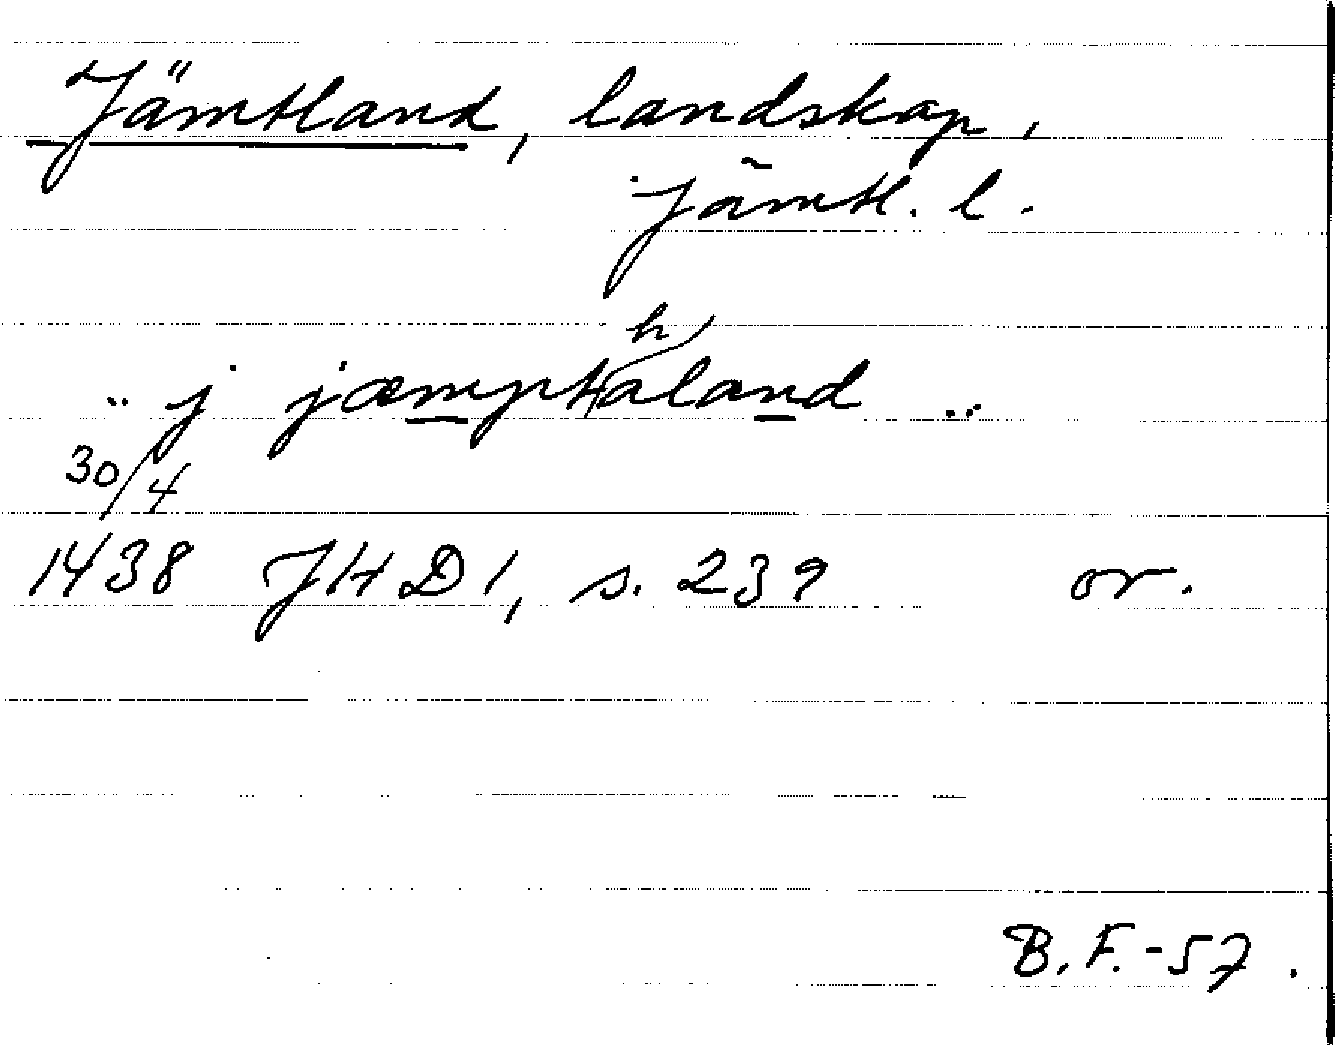 Jämtland, landskap,
Jämtl. l.
.. j jæmpthaland ...
30/4
1438 JHD 1, s. 239 or.
B. F. -57.